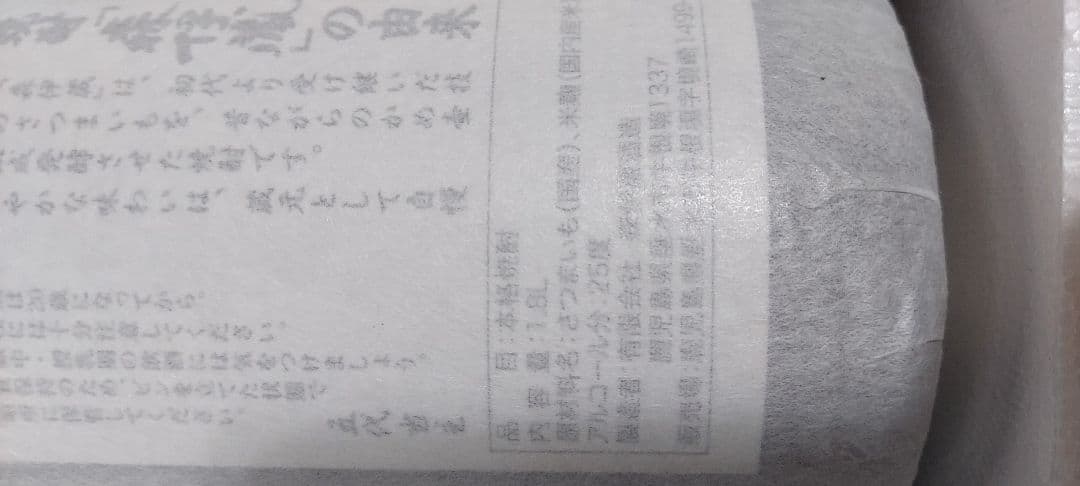 「森伊蔵」の由来
は、初代より受け継いだ技
さつまいもを、昔ながらのかめ壷
発酵させた焼酎です。
やかな味わいは、蔵元として自慢
は20歳になってから。
には十分注意してください。
中・授乳期の飲酒には気をつけましょう。
のため、ビンを立てた状態で
に保管してください。
五代当主
品目:本格焼酎
内容量:1.8L
原材料名:さつまいも(国産)、米麹(国内産米
アルコール分:25度
製造者:有限会社 森伊蔵酒造
鹿児島県垂水市牛根麓1337
製造場:鹿児島県垂水市牛根
1499